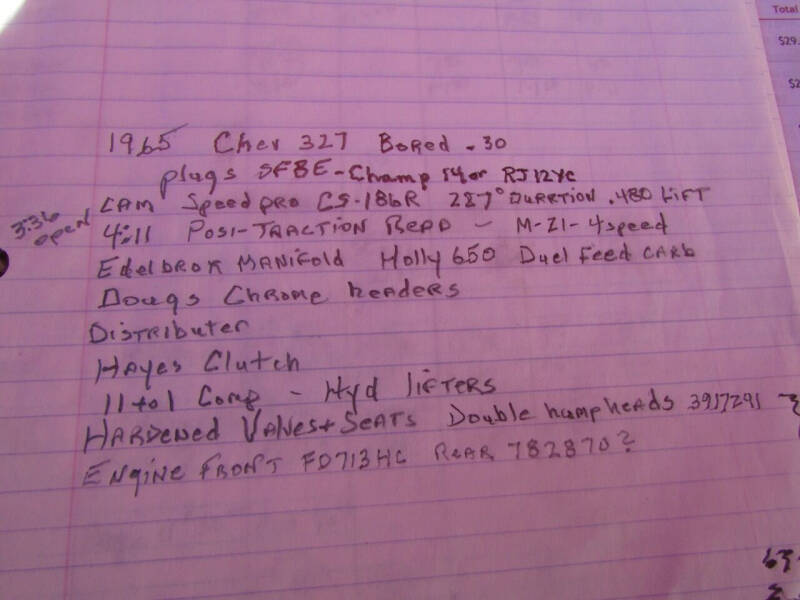 Total
$29.
$2
1965 Chev 327 Bored .30
plugs SFBE-Champ 14 or RJ12YC
CAM Speed pro CS-186R 287° DURRTION .480 LiFT
3:36 open
4:11 POSI-TRACTION READ - M-21-4speed
Edelbrok MANifold Holly 650 Duel Feed CARb
Dougs Chrome headers
DisTRibuter
HAyes Clutch
11 to 1 Comp - Hyd liFTERS
HARDENED VALVES + SEATS Double hump heads 3917291
ENgiNE FRONT FO713HC REAR 782870?